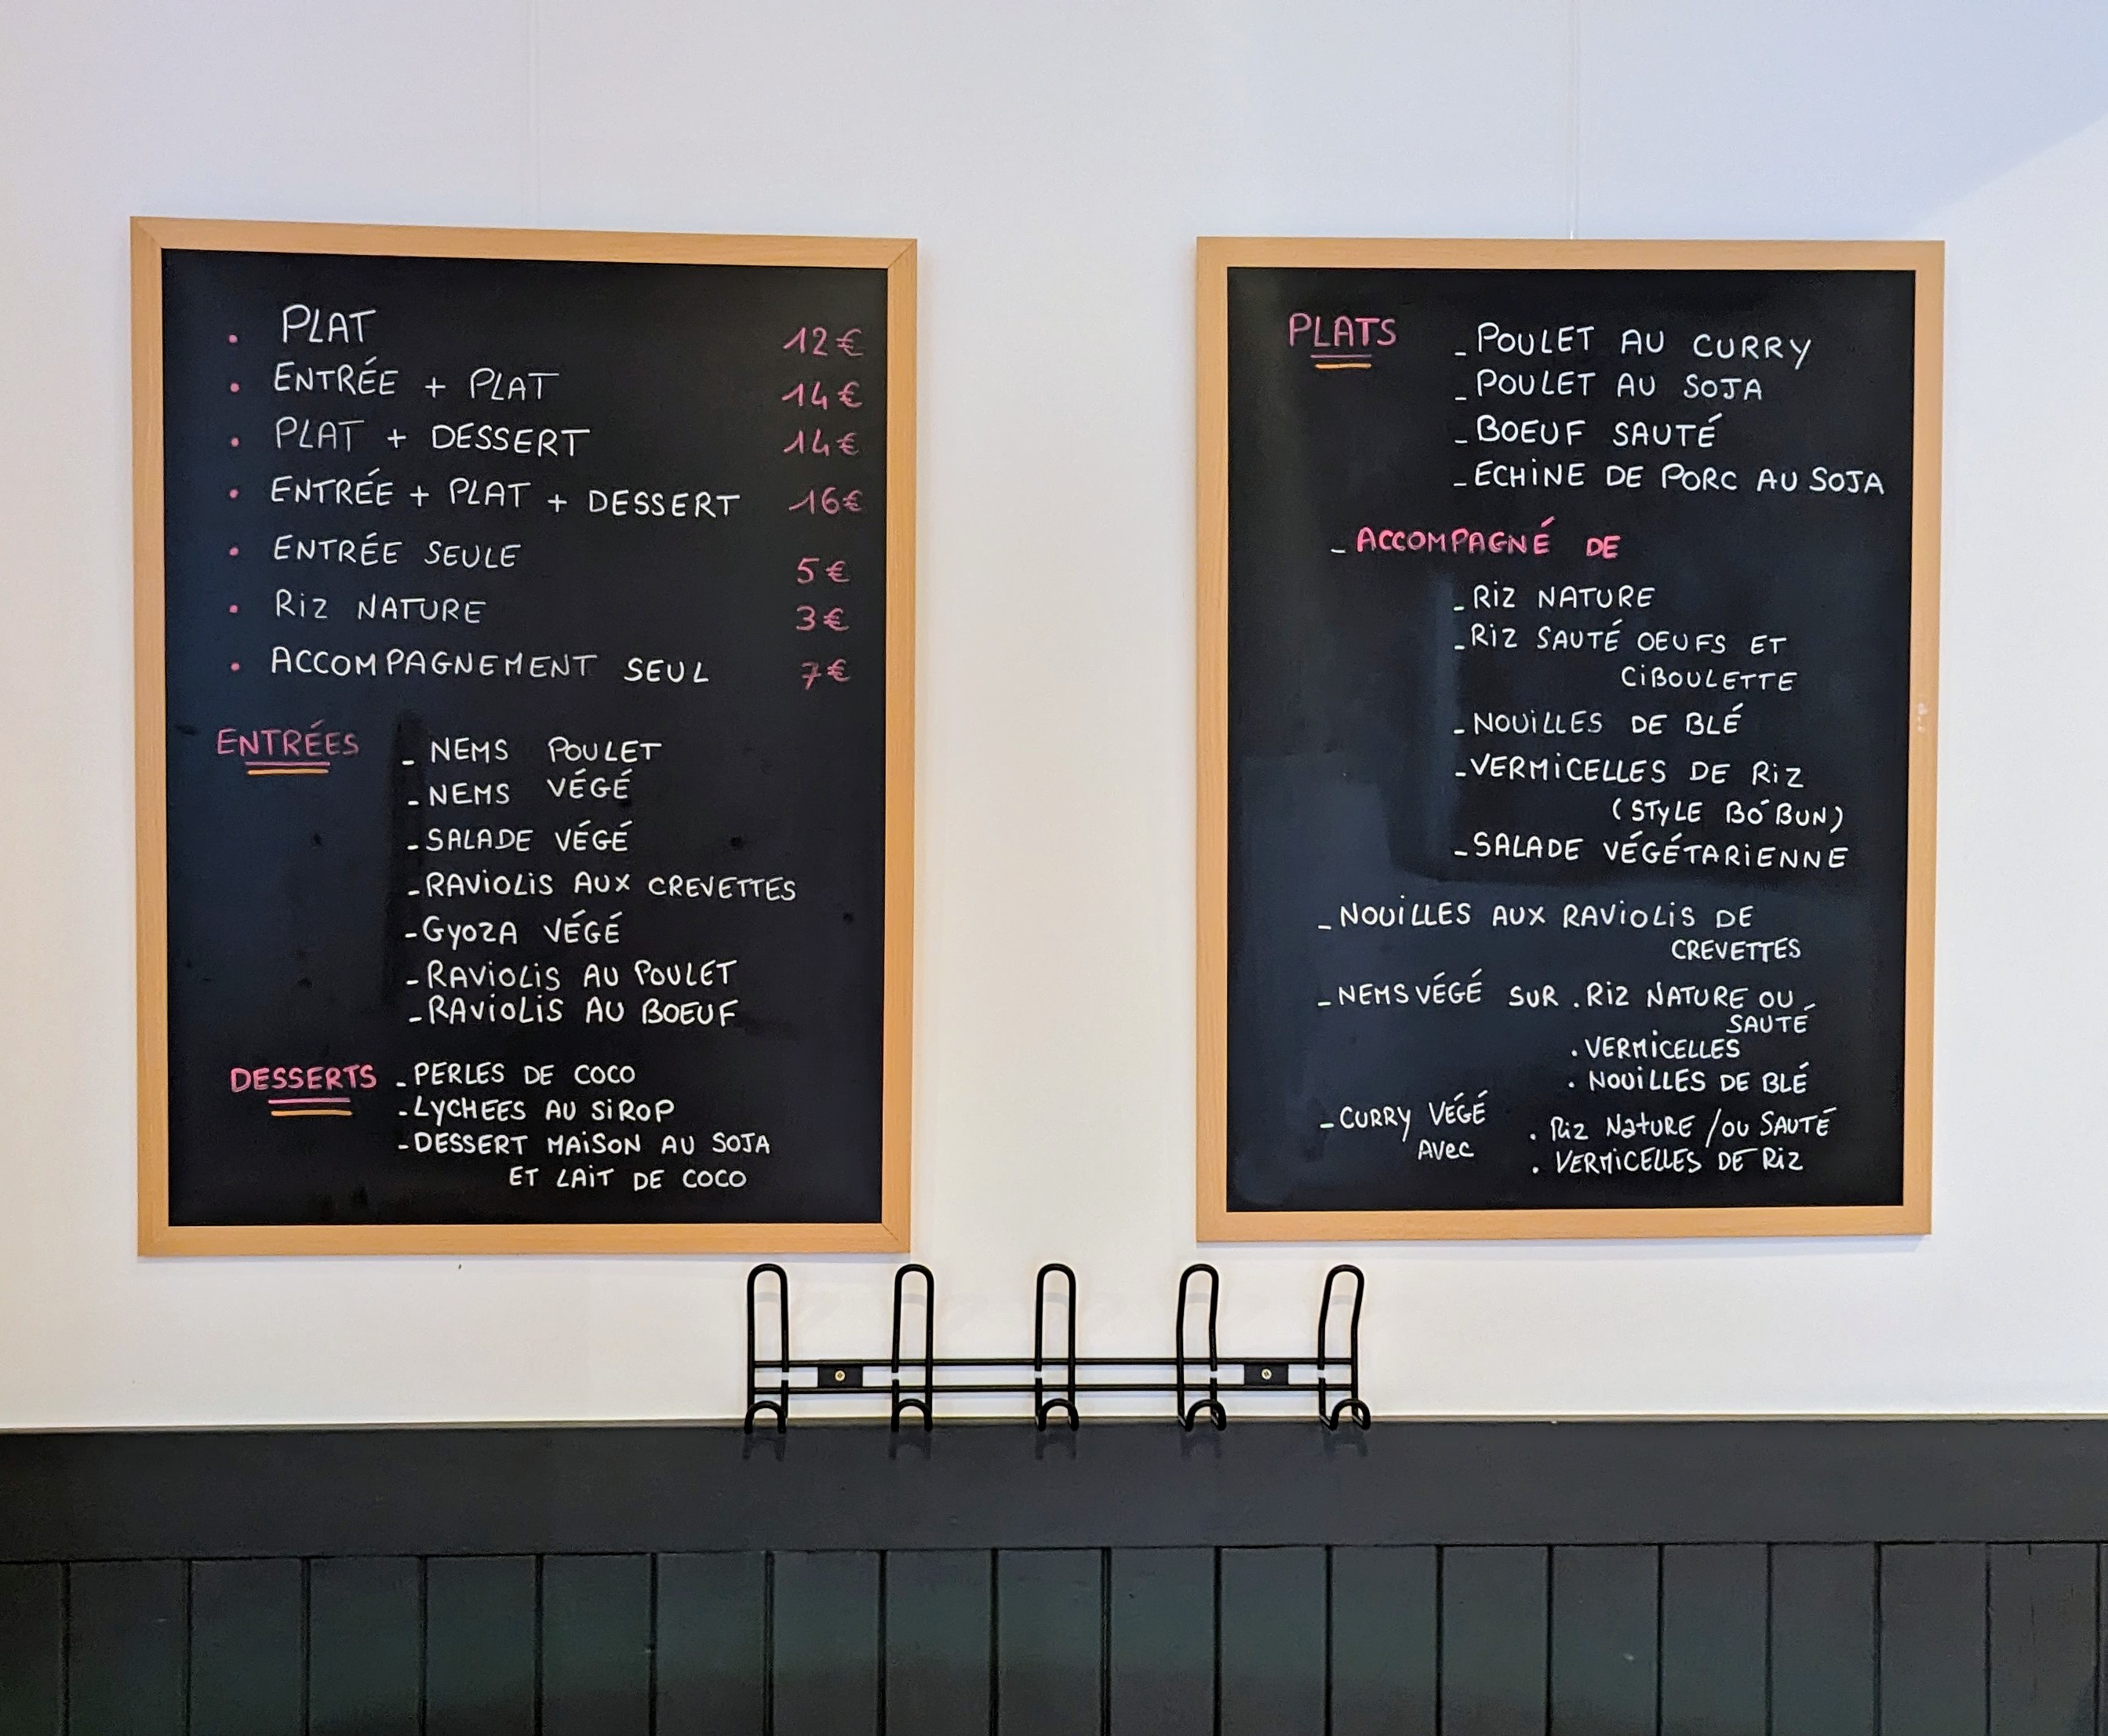 • PLAT 12€
• ENTRÉE + PLAT 14€
• PLAT + DESSERT 14€
• ENTRÉE + PLAT + DESSERT 16€
• ENTRÉE SEULE 5€
• RIZ NATURE 3€
• ACCOMPAGNEMENT SEUL 7€
ENTRÉES - NEMS POULET
- NEMS VÉGÉ
- SALADE VÉGÉ
- RAVIOLIS AUX CREVETTES
- GYOZA VÉGÉ
- RAVIOLIS AU POULET
- RAVIOLIS AU BOEUF
DESSERTS - PERLES DE COCO
- LYCHEES AU SIROP
- DESSERT MAISON AU SOJA
ET LAIT DE COCO
PLATS - POULET AU CURRY
- POULET AU SOJA
- BOEUF SAUTÉ
- ECHINE DE PORC AU SOJA
- ACCOMPAGNÉ DE
- RIZ NATURE
- RIZ SAUTÉ OEUFS ET
CIBOULETTE
- NOUILLES DE BLÉ
- VERMICELLES DE RIZ
(STYLE BÓ BUN)
- SALADE VÉGÉTARIENNE
- NOUILLES AUX RAVIOLIS DE
CREVETTES
- NEMS VÉGÉ SUR . RIZ NATURE OU
SAUTÉ
. VERMICELLES
. NOUILLES DE BLÉ
- CURRY VÉGÉ . RIZ NATURE / OU SAUTÉ
AVEC . VERMICELLES DE RIZ